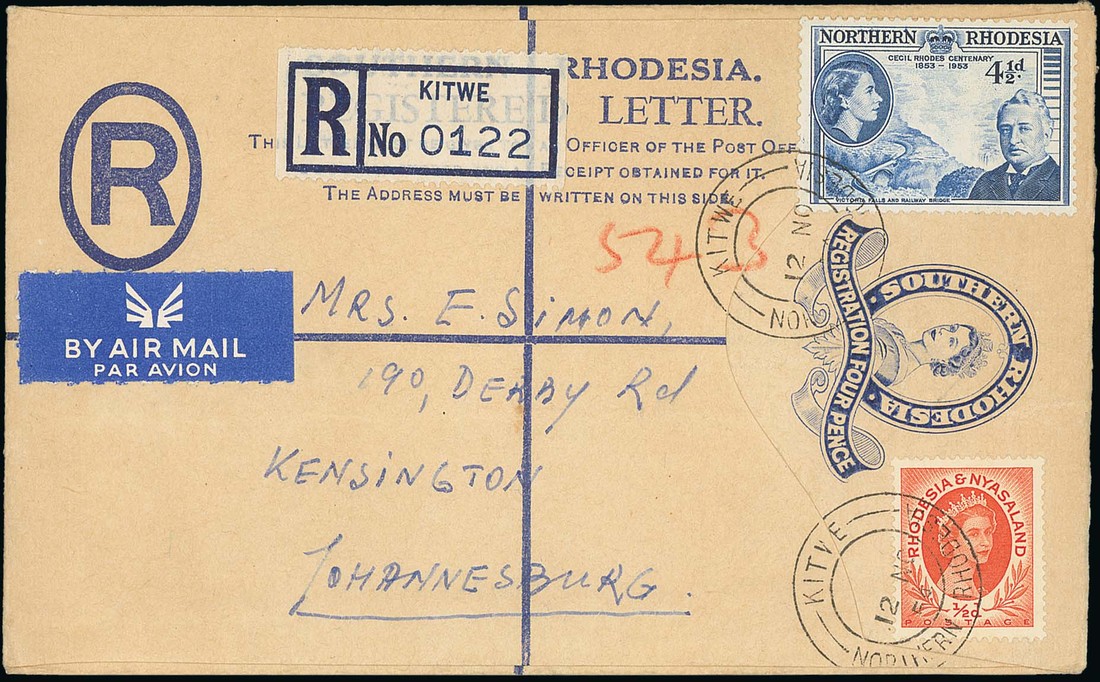 SOUTHERN RHODESIA.
REGISTERED LETTER.
OFFICER OF THE POST OFF
CEIPT OBTAINED FOR IT.
THE ADDRESS MUST BE WRITTEN ON THIS SIDE.
R
R
KITWE
No 0122
BY AIR MAIL
PAR AVION
543
MRS. E. SIMON,
190, DERBY Rd
KENSINGTON
JOHANNESBURG.
NORTHERN RHODESIA
CECIL RHODES CENTENARY
1853 - 1953
4½d.
VICTORIA FALLS AND RAILWAY BRIDGE
KITWE
12 NO
SOUTHERN RHODESIA
REGISTRATION FOUR PENCE
RHODESIA & NYASALAND
½d
POSTAGE
KITWE
12 NO
54
NORTHERN RHODESIA